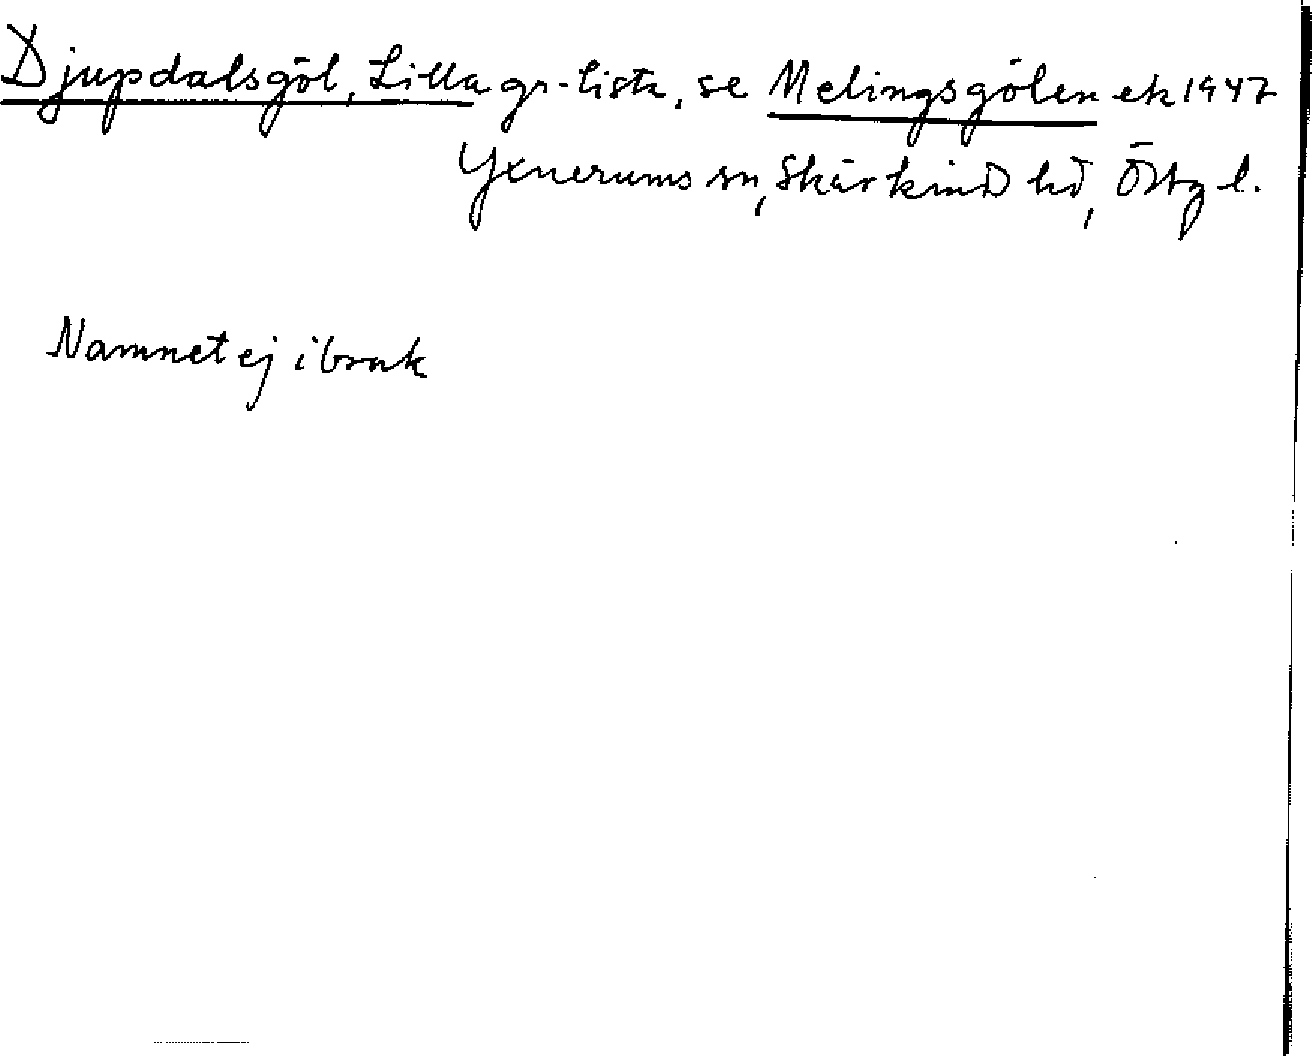 Djupdalsgöl, Lilla gr-lista, se Melingsgölen ek 1947
Yxnerums sn, Skärkind hd, Östg l.
Namnet ej i bruk